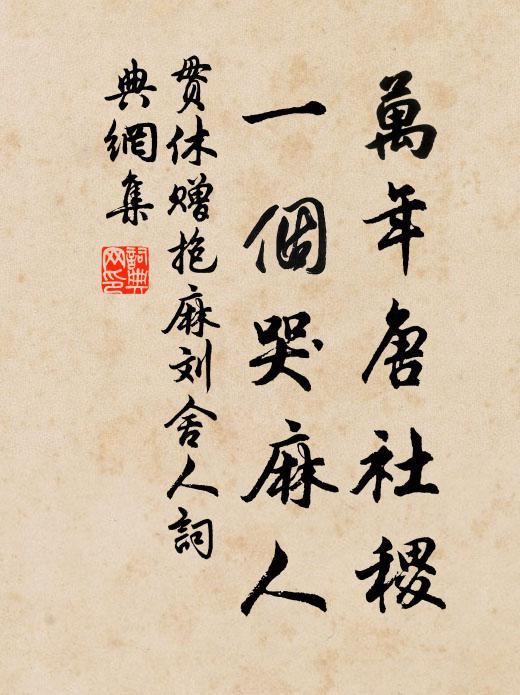 萬年唐社稷
一個哭麻人
贯休赠抱麻刘舍人詞
典網集
詞典
网印